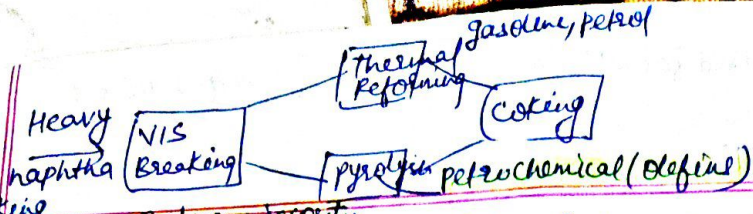 gasoline, petrol
Thermal
Reforming
Heavy
naphtha
VIS
Breaking
Coking
pyrolysis
petrochemical (olefins)